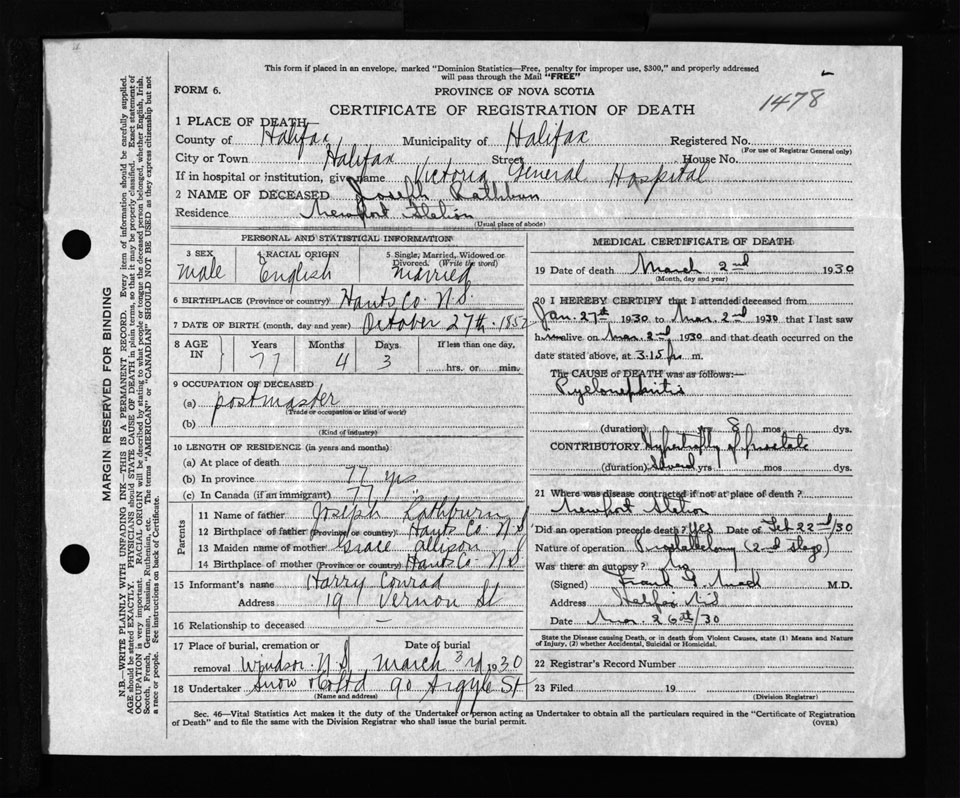 This form if placed in an envelope, marked "Dominion Statistics—Free, penalty for improper use, $300," and properly addressed
will pass through the Mail "FREE"
FORM 6.
PROVINCE OF NOVA SCOTIA
1478
CERTIFICATE OF REGISTRATION OF DEATH
1 PLACE OF DEATH
County of Halifax Municipality of Halifax Registered No.
(For use of Registrar General only)
City or Town Halifax Street House No.
If in hospital or institution, give name Victoria General Hospital
2 NAME OF DECEASED Joseph Rathbun
Residence Newport Station
(Usual place of abode)
PERSONAL AND STATISTICAL INFORMATION
3 SEX 4 RACIAL ORIGIN 5 Single, Married, Widowed or
Divorced. (Write the word)
Male English Married
6 BIRTHPLACE (Province or country) Hants Co. N.S.
7 DATE OF BIRTH (month, day and year) October 27th 1852
8 AGE IN Years Months Days If less than one day,
77 4 3 hrs. or min.
9 OCCUPATION OF DECEASED
(a) postmaster
(Trade or occupation or kind of work)
(b)
(Kind of industry)
10 LENGTH OF RESIDENCE (in years and months)
(a) At place of death
(b) In province 77 yrs
(c) In Canada (if an immigrant) 77
Parents
11 Name of father Joseph Rathburn
12 Birthplace of father (Province or country) Hants Co N.S
13 Maiden name of mother Grace Allison
14 Birthplace of mother (Province or country) Hants Co. N.S
15 Informant's name Harry Conrad
Address 19 Vernon St
16 Relationship to deceased —
17 Place of burial, cremation or Date of burial
removal Windsor N.S. March 3rd 1930
18 Undertaker Snow & Co Ltd 90 Argyle St
(Name and address)
MEDICAL CERTIFICATE OF DEATH
19 Date of death March 2nd 1930
(Month, day and year)
20 I HEREBY CERTIFY that I attended deceased from
Jan. 27th 1930 to Mar. 2nd 1930 that I last saw
him alive on Mar. 2nd 1930 and that death occurred on the
date stated above, at 3.15 p. m.
The CAUSE of DEATH was as follows:
Pyelonephritis
(duration) yrs 8 mos dys.
CONTRIBUTORY Hypertrophy of prostate
(duration) Several yrs mos dys.
21 Where was disease contracted if not at place of death?
Newport Station
Did an operation precede death? Yes Date of Feb 22nd/30
Nature of operation (2nd stage)
Was there an autopsy? No
(Signed) Frank M.D.
Address Halifax N.S
Date Mar. 26th/30
State the Disease causing Death, or in death from Violent Causes, state (1) Means and Nature
of Injury, (2) whether Accidental, Suicidal or Homicidal.
22 Registrar's Record Number
23 Filed 19
(Division Registrar)
Sec. 46—Vital Statistics Act makes it the duty of the Undertaker or person acting as Undertaker to obtain all the particulars required in the "Certificate of Registration
of Death" and to file the same with the Division Registrar who shall issue the burial permit. (OVER)
MARGIN RESERVED FOR BINDING
N.B.—WRITE PLAINLY WITH UNFADING INK—THIS IS A PERMANENT RECORD. Every item of information should be carefully supplied.
AGE should be stated EXACTLY. PHYSICIANS should STATE CAUSE OF DEATH in plain terms, so that it may be properly classified. Exact statement of
OCCUPATION is very important. RACIAL ORIGIN will be described by stating to what people or tongue the deceased person belonged, whether English, Irish,
Scotch, French, German, Russian, Ruthenian, etc. The terms "AMERICAN" or "CANADIAN" SHOULD NOT BE USED as they express citizenship but not
a race or people. See instructions on back of Certificate.